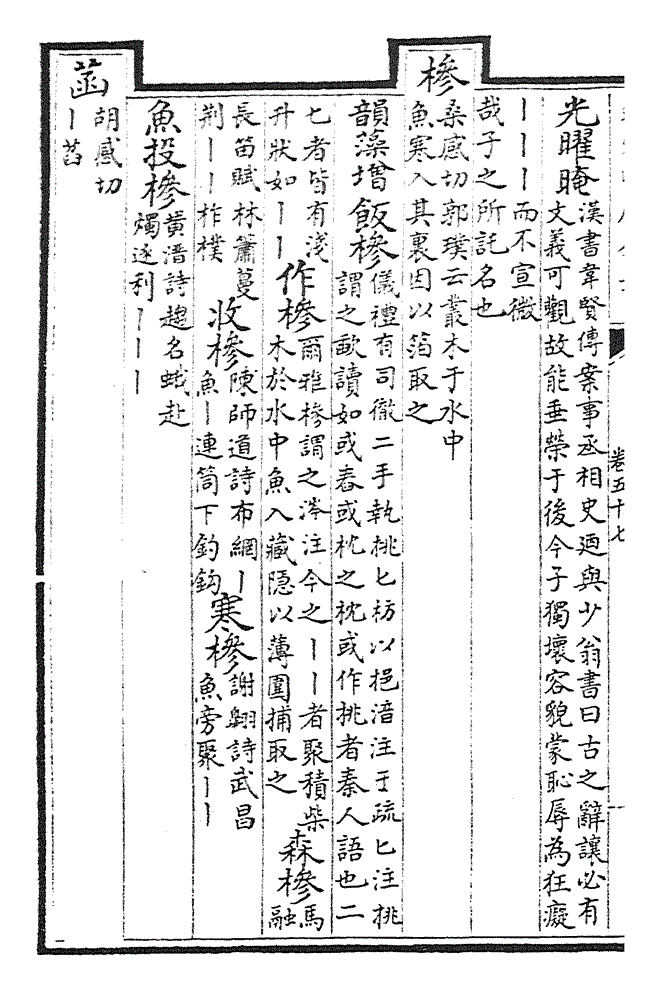 卷五十七
光曜晻
漢書韋賢傳案事丞相史廼與少翁書曰古之辭讓必有
文義可觀故能垂榮于後今子獨壞容貌蒙恥辱為狂癡
丨丨丨而不宣微
哉子之所託名也
槮
桑感切郭璞云叢木于水中
魚寒入其裏因以箔取之
韻藻增
飯槮
儀禮有司徹二手執挑匕枋以挹湆注于疏匕注挑
謂之歃讀如或舂或枕之枕或作挑者秦人語也二
匕者皆有淺
升狀如丨丨
作槮
爾雅槮謂之涔注今之丨丨者聚積柴
木於水中魚入藏隱以薄圍捕取之
森槮
馬
融
長笛賦林蕭蔓
荆丨丨柞樸
收槮
陳師道詩布網丨
魚丨連筒下釣鈎
寒槮
謝翺詩武昌
魚旁聚丨丨
魚投槮
黃溍詩趨名蛾赴
燭逐利丨丨丨
菡
胡感切
丨萏